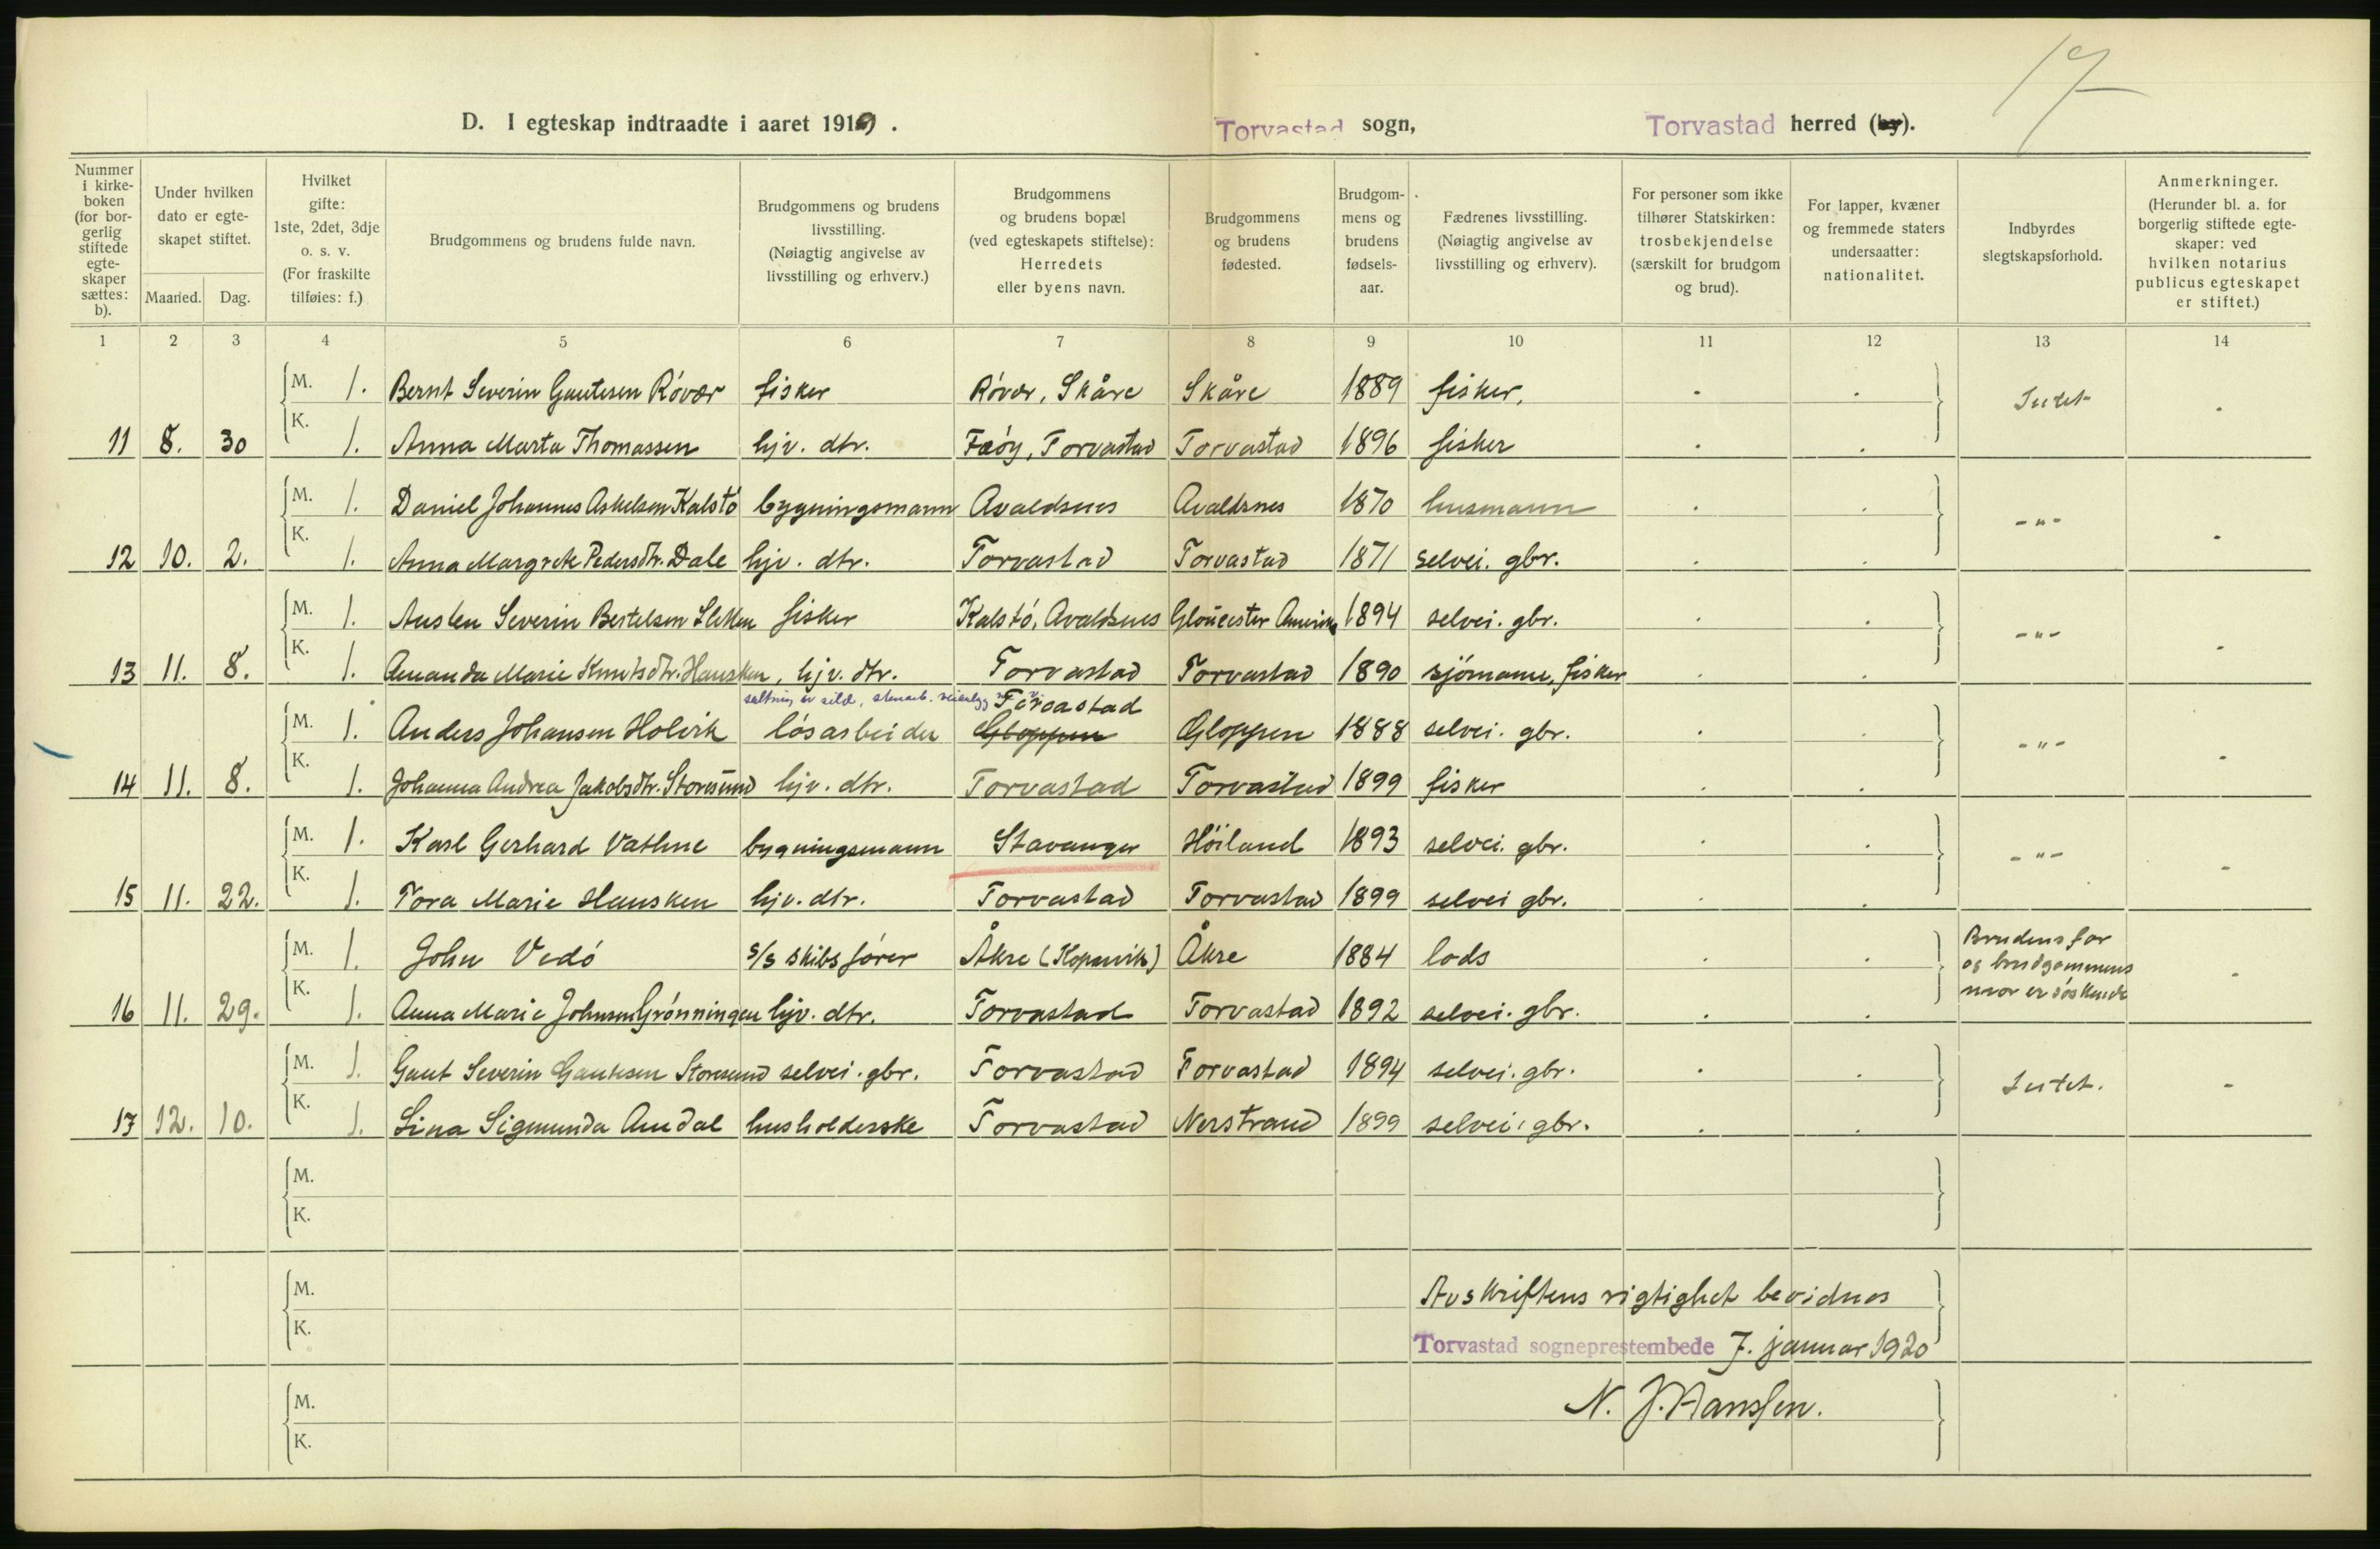 17
D. I egteskap indtraadte i aaret 1919. Torvastad sogn, Torvastad herred (by).
Nummer i kirke-boken (for bor-gerlig stiftede egte-skaper sættes: b).
Under hvilken dato er egte-skapet stiftet.
Maaned. Dag.
Hvilket gifte: 1ste, 2det, 3dje o. s. v. (For fraskilte tilføies: f.)
Brudgommens og brudens fulde navn.
Brudgommens og brudens livsstilling. (Nøiagtig angivelse av livsstilling og erhverv.)
Brudgommens og brudens bopæl (ved egteskapets stiftelse): Herredets eller byens navn.
Brudgommens og brudens fødested.
Brudgom-mens og brudens fødsels-aar.
Fædrenes livsstilling. (Nøiagtig angivelse av livsstilling og erhverv).
For personer som ikke tilhører Statskirken: trosbekjendelse (særskilt for brudgom og brud).
For lapper, kvæner og fremmede staters undersaatter: nationalitet.
Indbyrdes slegtskapsforhold.
Anmerkninger. (Herunder bl. a. for borgerlig stiftede egte-skaper: ved hvilken notarius publicus egteskapet er stiftet.)
1 2 3 4 5 6 7 8 9 10 11 12 13 14
M. 1. Bernt Severin Gautesen Róvær fisker Róvær, Skåre Skåre 1889 fisker. Intet
K.
11 8. 30 1. Anna Marta Thomassen hjv. dtr. Fæóy, Torvastad Torvastad 1896 fisker
M. 1. Daniel Johannes Askelsen Kalstó bygningsmann Avaldsnes Avaldsnes 1870 husmann -"-
K.
12 10. 2. 1. Anna Margrete Pedersdtr. Dale hjv. dtr. Torvastad Torvastad 1871 selvei. gbr.
M. 1. Austen Severin Bertelsen fisker Kalstó, Avaldsnes Gloucester Amerika 1894 selvei. gbr. -"-
K.
13 11. 8. 1. Amanda Marie Knutsdtr. Hausken, hjv. dtr. Torvastad Torvastad 1890 sjómann, fisker
saltning av sild, stenarb. Torvastad
M. 1. Anders Johansen Holvik lósarbeider Gloppen Gloppen 1888 selvei. gbr. -"-
K.
14 11. 8. 1. Johanna Andrea Jakobsdtr. Storesund hjv. dtr. Torvastad Torvastad 1899 fisker
M. 1. Karl Gerhard Vathne bygningsmann Stavanger Höiland 1893 selvei. gbr. -"-
K.
15 11. 22. 1. Tora Marie Hausken hjv. dtr. Torvastad Torvastad 1899 selvei gbr.
M. 1. John Vedó s/s skibsfórer Åkre (Kopervik) Åkre 1884 lods Brudens far
og brudgommens
K. mor er sóskende
16 11. 29. 1. Anna Marie Johnsen Grónningen hjv. dtr. Torvastad Torvastad 1892 selvei. gbr.
M. 1. Gaut Severin Gautesen Storesund selvei. gbr. Torvastad Torvastad 1894 selvei. gbr. Intet.
K.
17 12. 10. 1. Lina Sigmunda Amdal husholderske Torvastad Nerstrand 1899 selvei. gbr.
M.
K.
M. Avskriftens rigtighet bevidnes
K.
Torvastad sogneprestembede 7. januar 1920
M. N. J. Hanssen.
K.